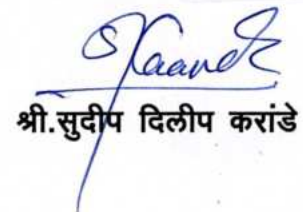 श्री.सुदीप दिलीप करांडे